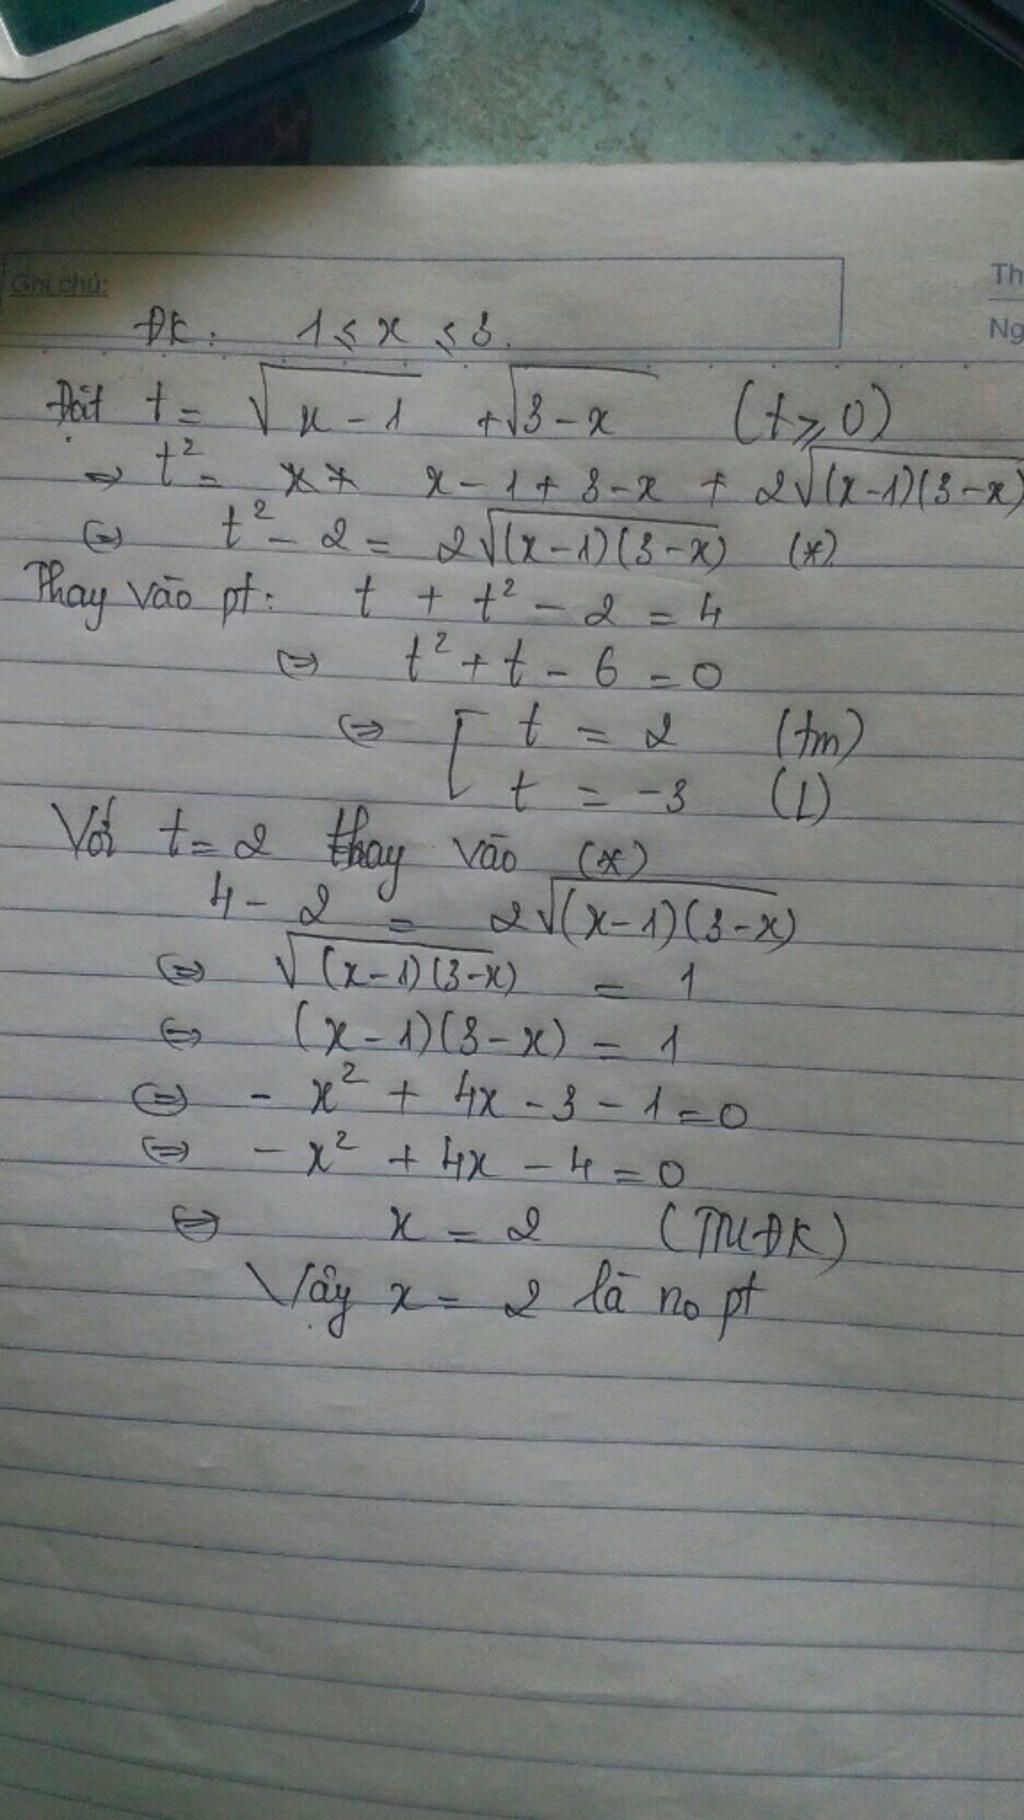 Ghi chú:
Th
Ng
ĐK: 1 ≤ x ≤ 3.
Đặt t = √(x-1) + √(3-x) (t ≥ 0)
=> t² = x-1+3-x + 2√((x-1)(3-x))
<=> t² - 2 = 2√((x-1)(3-x)) (*)
Thay vào pt: t + t² - 2 = 4
<=> t² + t - 6 = 0
<=> [ t = 2 (tm)
t = -3 (L)
Với t = 2 thay vào (*)
4 - 2 = 2√((x-1)(3-x))
<=> √((x-1)(3-x)) = 1
<=> (x-1)(3-x) = 1
<=> - x² + 4x - 3 - 1 = 0
<=> - x² + 4x - 4 = 0
<=> x = 2 (TMĐK)
Vậy x = 2 là no pt